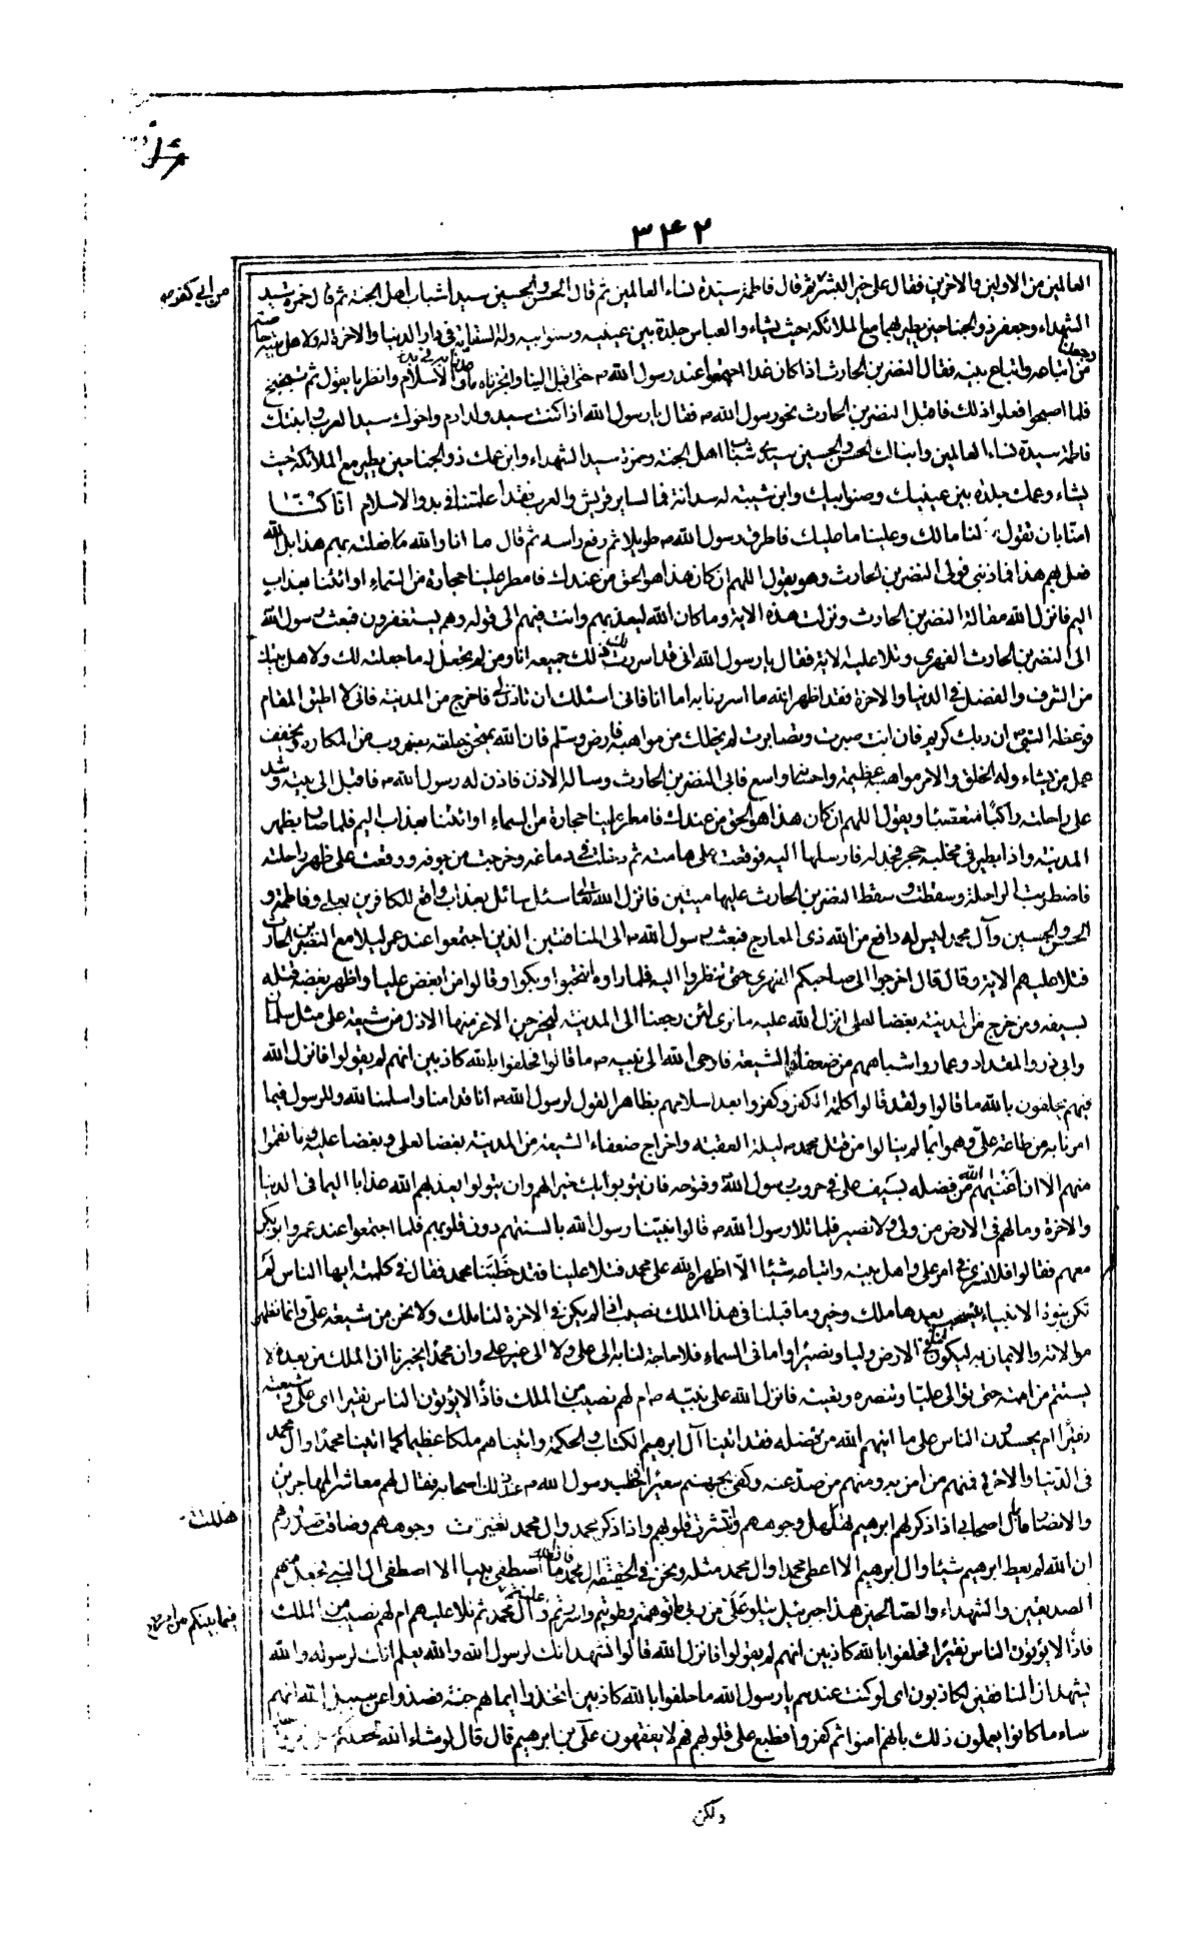 ٣٤٢
العالمين من الاولين والاخرين فقال على خير البشر ثم قال فاطمة سيدة نساء العالمين ثم قال الحسن والحسين سيدا شباب اهل الجنة ثم قال حمزة سيد
الشهداء وجعفر ذو الجناحين يطير بهما مع الملائكة حيث يشاء والعباس جلدة بين عينيه وصنو ابيه وله السقاية في دار الدنيا والاخرة له ولاهل بيته
من اتباعه واتباع بيته فقال النضر بن الحارث اذا كان غدا اجتمعوا عند رسول الله ص حتى اقبل الينا الاسلام وانظر ما يقول ثم
فلما اصبحوا فعلوا ذلك فاقبل النضر بن الحارث نحو رسول الله ص فقال يا رسول الله اذا كنت سيد ولد ادم واخوك سيد العرب وابنتك
فاطمة سيدة نساء العالمين وابناك الحسن والحسين سيدا شباب اهل الجنة وحمزة سيد الشهداء وابن عمك ذو الجناحين يطير مع الملائكة حيث
يشاء وعمك جلدة بين عينيك وصنو ابيك وابن شيبة له سدانة فما لساير قريش والعرب فقد اعلمتنا في بدو الاسلام انا كنا
امنا بان تقول لنا مالك وعلينا ما عليك فاطرق رسول الله ص طويلا ثم رفع راسه ثم قال ما انا والله ما فعلته بهم هذا بل الله
فعل بهم هذا فما ذنبي فولى النضر بن الحارث وهو يقول اللهم ان كان هذا هو الحق من عندك فامطر علينا حجارة من السماء او ائتنا بعذاب
اليم فانزل الله مقالة النضر بن الحارث ونزلت هذه الاية وما كان الله ليعذبهم وانت فيهم الى قوله وهم يستغفرون فبعث رسول الله
الى النضر بن الحارث الفهري وتلا عليه الاية فقال يا رسول الله اني قد اسررت ذلك جميعه انا ومن لم يجعل له ما جعلته لك ولاهل بيتك
من الشرف والفضل في الدنيا والاخرة فقد اظهر الله ما اسررنا به اما انا فاني اسئلك ان تاذن لي فاخرج من المدينة فاني لا اطيق المقام
فوعظه النبي ص ان ربك كريم فان انت صبرت وتصابرت لم يخلك من مواهبه فارض وسلم فان الله يمتحن خلقه بضروب من المكاره ويخفف
عمن يشاء وله الخلق والامر مواهبه عظيمة واحسانه واسع فابى النضر بن الحارث وساله الاذن فاذن له رسول الله ص فاقبل الى بيته وشد
على راحلته راكبا متعصبا ويقول اللهم ان كان هذا هو الحق من عندك فامطر علينا حجارة من السماء او ائتنا بعذاب اليم فلما صار بظهر
المدينة واذا بطير في مخلبه حجر فجدله فارسلها اليه فوقعت على هامته ثم دخلت في دماغه وخرجت من جوفه ووقعت على ظهر راحلته
فاضطربت الراحلة وسقطت وسقط النضر بن الحارث عليها ميتين فانزل الله تعالى سئل سائل بعذاب واقع للكافرين بعلي وفاطمة و
الحسن والحسين وآل محمد ليس له دافع من الله ذي المعارج فبعث رسول الله ص الى المنافقين الذين اجتمعوا عند عمر ليلا مع النضر بن الحارث
فتلا عليهم الاية وقال قال اخرجوا الى صاحبكم الفهري حتى تنظروا اليه فلما راوه انتحبوا وبكوا وقالوا من ابغض عليا واظهر بغضه قتله
بسيفه ومن خرج من المدينة بغضا لعلي انزل الله عليه ما نرى لئن رجعنا الى المدينة ليخرجن الاعز منها الاذل من شيعة علي مثل سلمان
وابي ذر والمقداد وعمار واشباههم من ضعفاء الشيعة فاوحى الله الى نبيه ص ما قالوا فحلفوا بالله كاذبين انهم لم يقولوا فانزل الله
فيهم يحلفون بالله ما قالوا ولقد قالوا كلمة الكفر وكفروا بعد اسلامهم بظاهر القول لرسول الله ص انا قد امنا واسلمنا لله وللرسول فيما
امرنا به من طاعة علي وهموا بما لم ينالوا من قتل محمد ص ليلة العقبة واخراج ضعفاء الشيعة من المدينة بغضا لعلي وبغضا عليه وما نقموا
منهم الا ان اغنيهم الله من فضله بسيف علي في حروب رسول الله وفتوحه فان يتوبوا يك خيرا لهم وان يتولوا يعذبهم الله عذابا اليما في الدنيا
والاخرة وما لهم في الارض من ولي ولا نصير فلما تلا رسول الله ص قالوا نبينا رسول الله بالسنتهم دون قلوبهم فلما اجتمعوا عند عمر وابو بكر
معهم فقالوا افلا نسر في امر علي واهل بيته واتباعه شيئا الا اظهره الله على محمد فتلا علينا فقد خطبنا محمد فقال في كلمته ايها الناس لم
تكن نبوة الانبياء بعدها ملك وخير وما قبلنا في هذا الملك نصيب اذا لم يكن في الاخرة لنا ملك ولا نحن من شيعة علي وانما نظهر
موالاته والايمان به ليكون لنا في الارض وليا ونصيرا واما في السماء فلا حاجة لنا به الى علي ولا الى غير علي وان محمدا ليخبرنا ان الملك من بعده لا
يستتم من امته حتى يوالى عليا وتنصره وتعينه فانزل الله على نبيه ص ام لهم نصيب من الملك فاذا لا يؤتون الناس نقيرا اي علي وشيعته
نقيرا ام يحسدون الناس على ما اتيهم الله من فضله فقد اتينا آل ابرهيم الكتاب والحكمة واتيناهم ملكا عظيما كما اتينا محمدا وال محمد
في الدنيا والاخرة فمنهم من امن به ومنهم من صد عنه وكفى بجهنم سعيرا فخطب رسول الله ص عند ذلك اصحابه فقال لهم معاشر المهاجرين
والانصار ما بال اصحابي اذا ذكر لهم ابرهيم تهلل وجوههم وانتشرت قلوبهم واذا ذكر محمد وال محمد تغيرت وجوههم وضاقت صدورهم
ان الله لم يعط ابرهيم شيئا وال ابرهيم الا اعطى محمدا وال محمد مثله ونحن في الحقيقة ال محمد ما اصطفى نبيا الا اصطفى ال النبي فجعل منهم
الصديقين والشهداء والصالحين هذا جبرئيل يتلو علي من ربي ما توهمتم وطويتم واسررتم وآل محمد ثم تلا عليهم ام لهم نصيب من الملك
فاذا لا يؤتون الناس نقيرا فحلفوا بالله كاذبين انهم لم يقولوا فانزل الله قالوا نشهد انك لرسول الله والله يعلم انك لرسوله والله
يشهد ان المنافقين لكاذبون اي لو كنت عندهم يا رسول الله ما حلفوا بالله كاذبين اتخذوا ايمانهم جنة فصدوا عن سبيل الله انهم
ساء ما كانوا يعملون ذلك بانهم امنوا ثم كفروا فطبع على قلوبهم فهم لا يفقهون علي بن ابرهيم قال قال لو شاء الله لجعلكم
ولكن